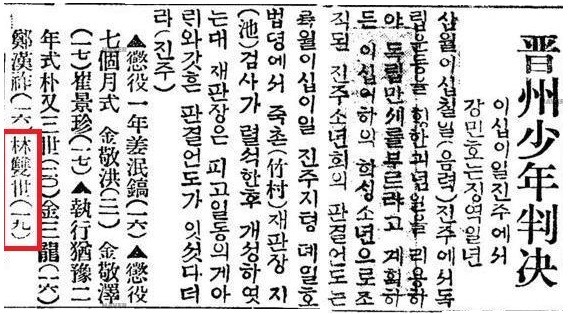 晋州少年判决
이십이일진주에서
강민호는징역일년
삼월이십칠일(음력)진주에서독
립운동을 리용하
야 독립만세를부르라고 계획하
든 이십여하의 학싱소년으로조
직된 진주소년회의 판결언도는
륙월이십이일 진주지텽 뎨일호
법뎡에서 죽촌(竹村)재판장 지
(池)검사가 렬석한후 개정하엿
는대 재판장은 피고일동의게아
리와갓흔 판결언도가 잇섯다더
라(진주)
▲懲役一年姜泯鎬(一六)▲懲役
七個月式 金敬洪 金敬澤
(一七)崔景珍(一七)▲執行猶豫二
年式朴又三世(二〇)金三龍(一六)
鄭漢祚(一六)林雙世(一九)